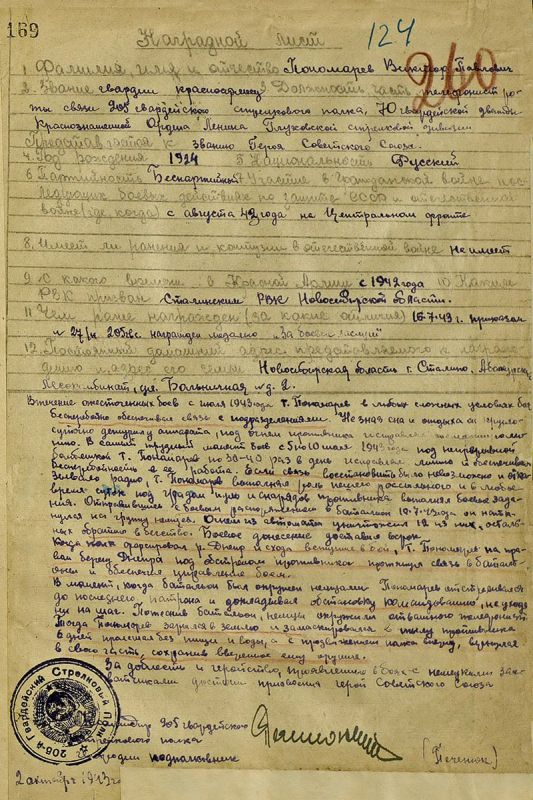 169
124
210
Наградной лист
1. Фамилия имя и отчество Пономарев Виктор Павлович
2. Звание гвардии красноармеец Должность, часть телефонист ро-
ты связи 205 гвардейского стрелкового полка, 70 гвардейской дважды
Краснознаменной Ордена Ленина Глуховской стрелковой дивизии
Представляется к званию Героя Советского Союза.
4. Год рождения 1924 5. Национальность Русский
6. Партийность Беспартийный 7. Участие в Гражданской войне, пос-
ледующих боевых действиях по защите СССР и отечественной
войне (где, когда) с августа 42 года на Центральном фронте
8. Имеет ли ранения и контузии в отечественной войне не имеет
9. С какого времени в Красной Армии с 1942 года 10. Каким
РВК призван Сталинским РВК Новосибирской области.
11. Чем ранее награжден (за какие отличия) 16.7.43 г. приказом
№ 27/н 205 гв.с. награжден медалью "За боевые заслуги"
12. Постоянный домашний адрес представляемого к награж-
дению и адрес его семьи Новосибирская область г. Сталино,
ул. Больничная д. 2.
В течение ожесточенных боев с июля 1943 года т. Пономарев в любых сложных условиях боя
бесперебойно обеспечивал связь с подразделениями. Не зная сна и отдыха он кругло-
суточно дежурил у аппарата, под огнем противника исправлял телефонную ли-
нию. В самый трудный момент боев с 5 по 10 июля 1943 года под непрерывной
бомбежкой т. Пономарев по 30-40 раз в день исправлял линию и обеспечивал
бесперебойность в ее работе. Если связь восстановить было невозможно и отка-
зывало радио, т. Пономарев выполнял роль пешего рассыльного и в любое
время суток под градом пуль и снарядов противника выполнял боевые зада-
ния. Отправившись с боевым распоряжением в батальон 10.7.43 года он натк-
нулся на группу немцев. Огнем из автомата уничтожил 12 из них, осталь-
ных обратил в бегство. Боевое донесение доставил в срок.
Когда полк форсировал р. Днепр и с хода вступил в бой, т. Пономарев на пра-
вом берегу Днепра под обстрелом противника протянул связь в батальо-
ны и обеспечил управление боем.
В момент, когда батальон был окружен немцами Пономарев отстреливался
до последнего патрона и докладывал обстановку командованию, не уходя
ни на шаг. Потеснив батальон, немцы окружили отважного телефониста.
Тогда Пономарев зарылся в землю и замаскировался в тылу противника
6 дней пролежал без пищи и воды, а с продвижением полка вперед, вернулся
в свою часть, сохранив вверенное ему оружие.
За доблесть и геройство, проявленные в боях с немецкими зах-
ватчиками достоин присвоения герой Советского Союза
Командир 205 гвардейского
стрелкового полка
гвардии подполковник
2 октября 1943 г.
Гвардейский Стрелковый Полк